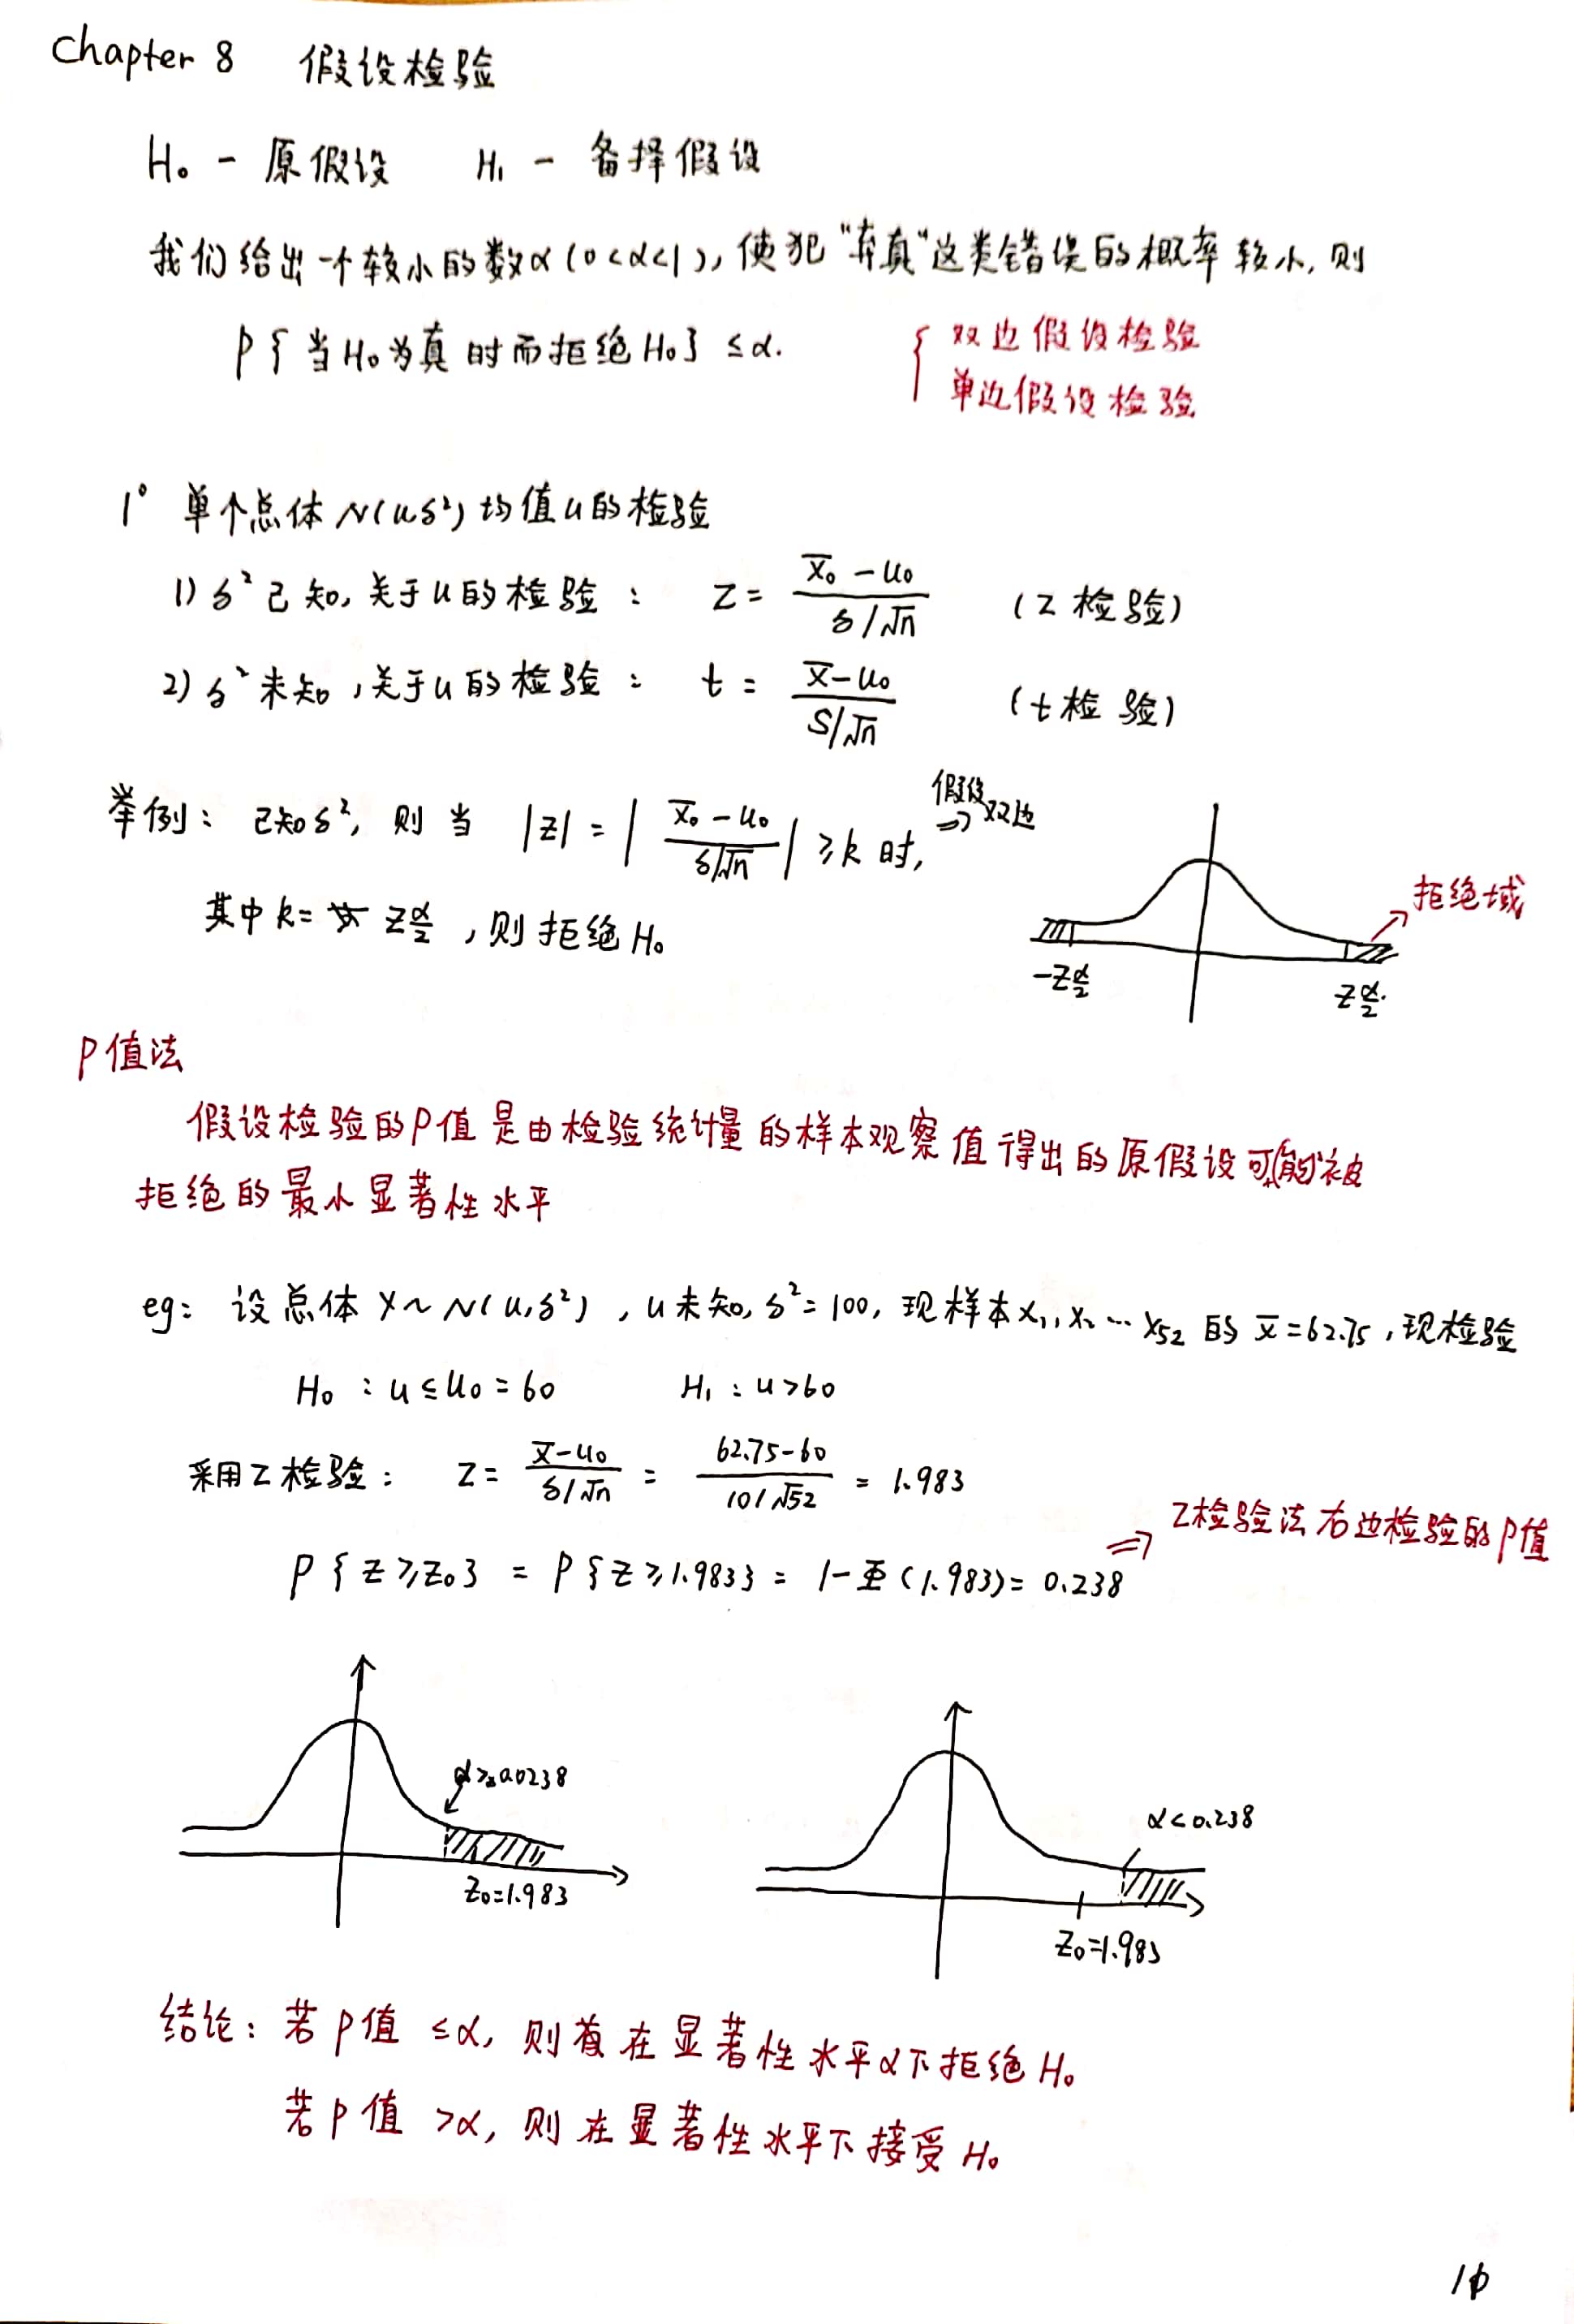 Chapter 8 假设检验
H₀ - 原假设 H₁ - 备择假设
我们给出一个较小的数α(0<α<1), 使犯"弃真"这类错误的概率较小, 则
P{当H₀为真时而拒绝H₀} ≤α.
{ 双边假设检验
单边假设检验
1° 单个总体N(u δ²)均值u的检验
1) δ²已知, 关于u的检验: Z = (x̄₀ - u₀)/(δ/√n) (Z检验)
2) δ²未知, 关于u的检验: t = (x̄ - u₀)/(S/√n) (t检验)
举例: 已知δ², 则当 |Z| = |(x̄₀ - u₀)/(δ/√n)| ≥k 时, ⇒ 假设双边
其中k= Zα/2 , 则拒绝H₀
拒绝域
-Zα/2 Zα/2.
P值法
假设检验的P值是由检验统计量的样本观察值得出的原假设可能被
拒绝的最小显著性水平
eg: 设总体X~N(u,δ²), u未知, δ²=100, 现样本x₁, x₂ … x₅₂ 的 x̄=62.75, 现检验
H₀: u≤u₀=60 H₁: u>60
采用Z检验: Z = (x̄-u₀)/(δ/√n) = (62.75-60)/(10/√52) = 1.983
⇒ Z检验法右边检验的P值
P{Z≥Z₀} = P{Z≥1.983} = 1-Φ(1.983)= 0.238
α≥0.0238
Z₀=1.983
α<0.238
Z₀=1.983
结论: 若P值 ≤α, 则在显著性水平α下拒绝H₀
若P值 >α, 则在显著性水平下接受H₀